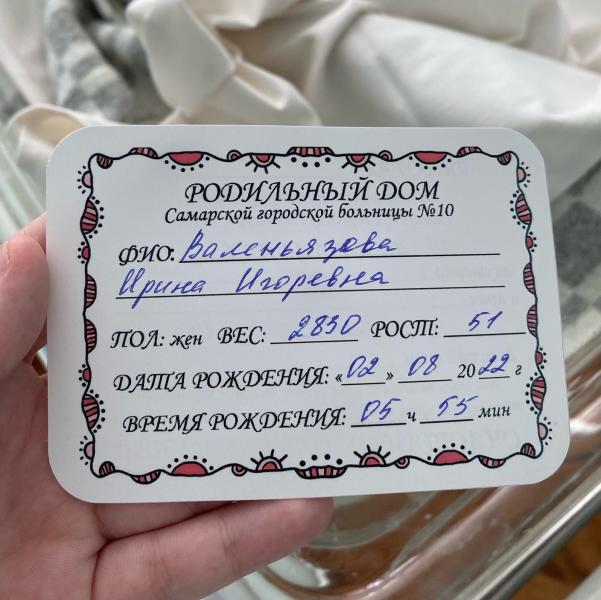 РОДИЛЬНЫЙ ДОМ
Самарской городской больницы №10
ФИО: Валеньязова
Ирина Игоревна
ПОЛ: жен ВЕС: 2830 РОСТ: 51
ДАТА РОЖДЕНИЯ: «02» 08 2022 г
ВРЕМЯ РОЖДЕНИЯ: 05 ч 55 мин